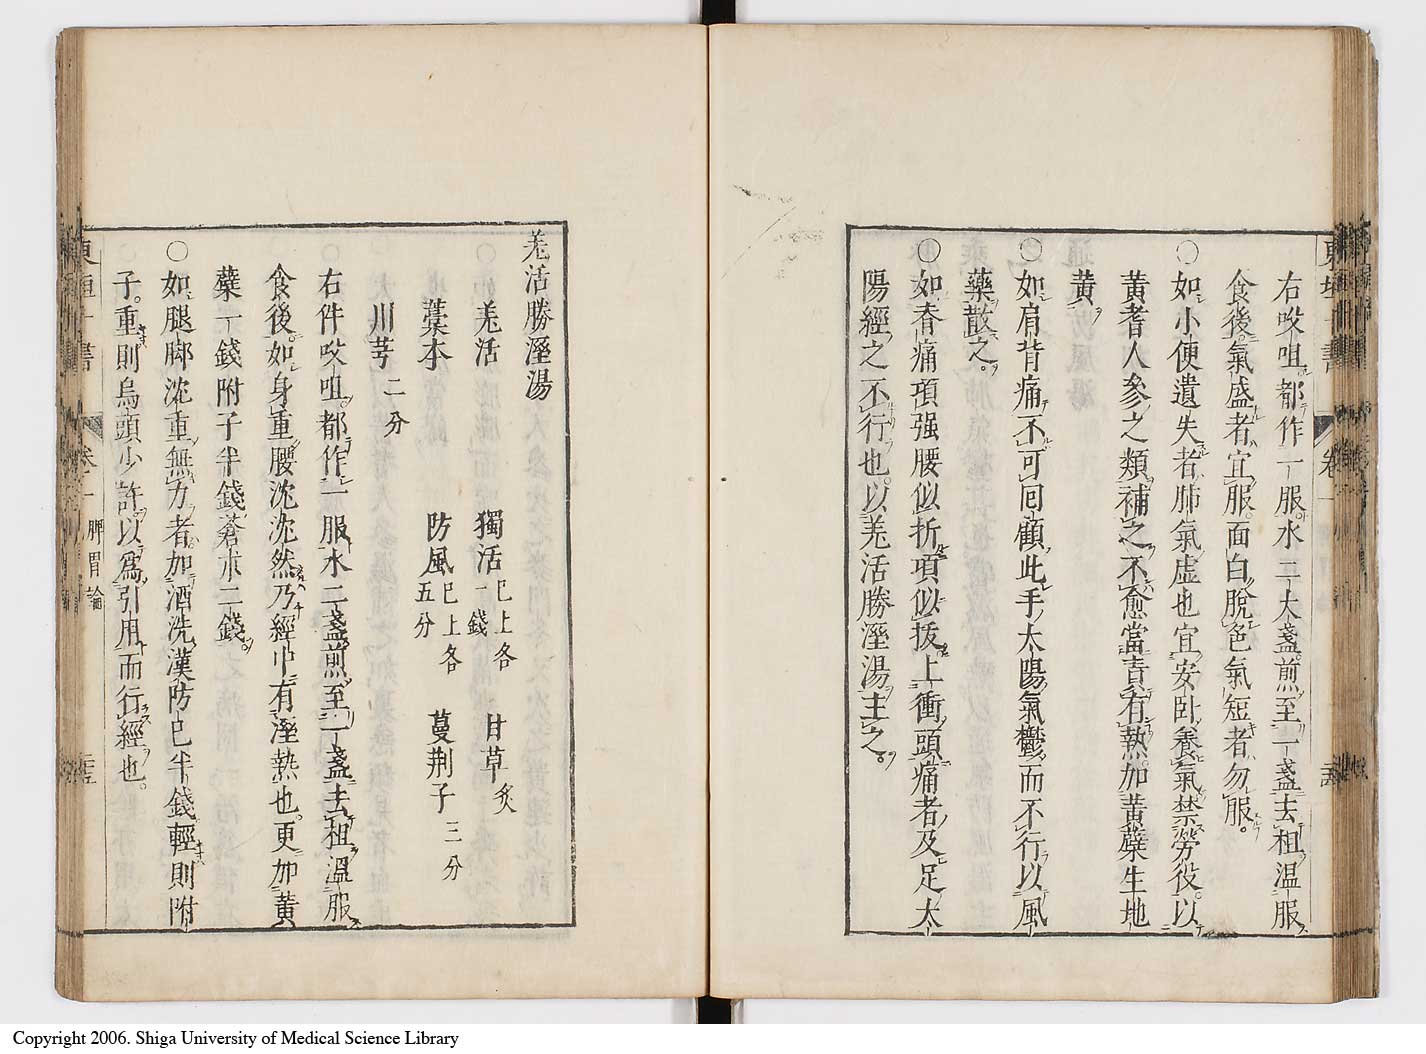 右㕮咀都作一服水二大盞煎至一盞去柤溫服
食後。氣盛者宜服。面白脫色氣短者勿服。
○如小便遺失者肺氣虛也宜安臥養氣禁勞役。以
黃耆人參之類補之不愈當責有熱加黃蘗生地
黃
○如肩背痛不可囘顧此手太陽氣鬱而不行以風
藥散之。
○如脊痛項强腰似折項似拔上衝頭痛者及足太
陽經之不行也。以羌活勝溼湯主之。
羌活勝溼湯
羌活 獨活 已上各一錢 甘草 炙
藁本 防風 已上各五分 蔓荆子 三分
川芎 二分
右件㕮咀都作一服水二盞煎至一盞去柤溫服
食後。如身重腰沈沈然乃經中有溼熱也。更加黃
蘗一錢附子半錢蒼朮二錢。
○如腿脚沈重無力者加酒洗漢防已半錢輕則附
子。重則烏頭少許。以爲引用而行經也。
東垣十書 卷二 脾胃論
Copyright 2006. Shiga University of Medical Science Library